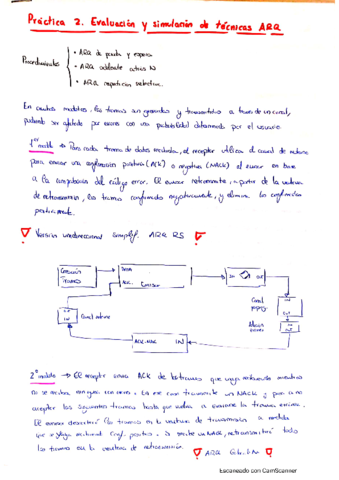 Práctica 2. Evaluación y simulación de técnicas ARQ
Procedimientos
• ARQ de parada y espera
• ARQ adelante atrás N
• ARQ repetición selectiva.
En cuatro modelos, las tramas son generadas y transmitidas a través de un canal,
pudiendo ser afectada por errores con una probabilidad determinada por el usuario.
1er modelo → Para cada trama de datos recibida, el receptor utiliza el canal de retorno
para enviar una confirmación positiva (ACK) o negativa (NACK) al emisor en base
a la comprobación del código error. El emisor retransmite, a partir de la ventana
de retransmisión, las tramas confirmadas negativamente, y elimina las confirmadas
positivamente.
Versión unidireccional simplif. ARQ RS
Generación
Tramas
DATA
ACK. Emisor
IN
OUT
Canal
Canal retorno
ACK-NAK
IN
2º modelo → El receptor envía ACK de las tramas que vaya recibiendo mientras
no se reciba ninguna con error. En ese caso transmite un NACK y pasa a no
aceptar las siguientes tramas hasta que vuelva a enviarse la trama errónea.
El emisor descartará las tramas en la ventana de transmisión a medida
que se vayan recibiendo conf. positiva. Si recibe un NACK, retransmitirá todas
las tramas en la ventana de retransmisión.
ARQ Gb.N
Escaneado con CamScanner